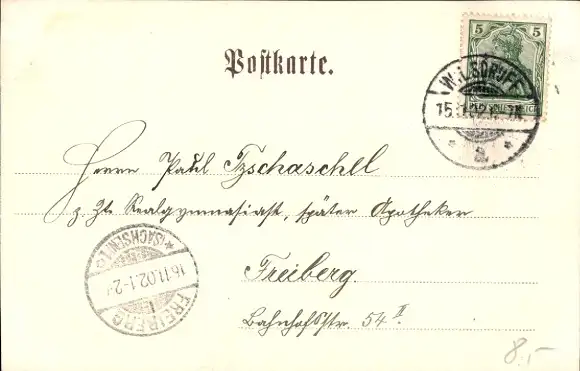 Postkarte.
5
WILSDRUFF
15. 02
a.
Herrn Paul Tzschaschel
z. Zt. Realgymnasiast, später Apotheker
Freiberg.
Bahnhofstr. 54 II
FREIBERG
16.11.02.1-2
*(SACHSEN)1.c
8.-